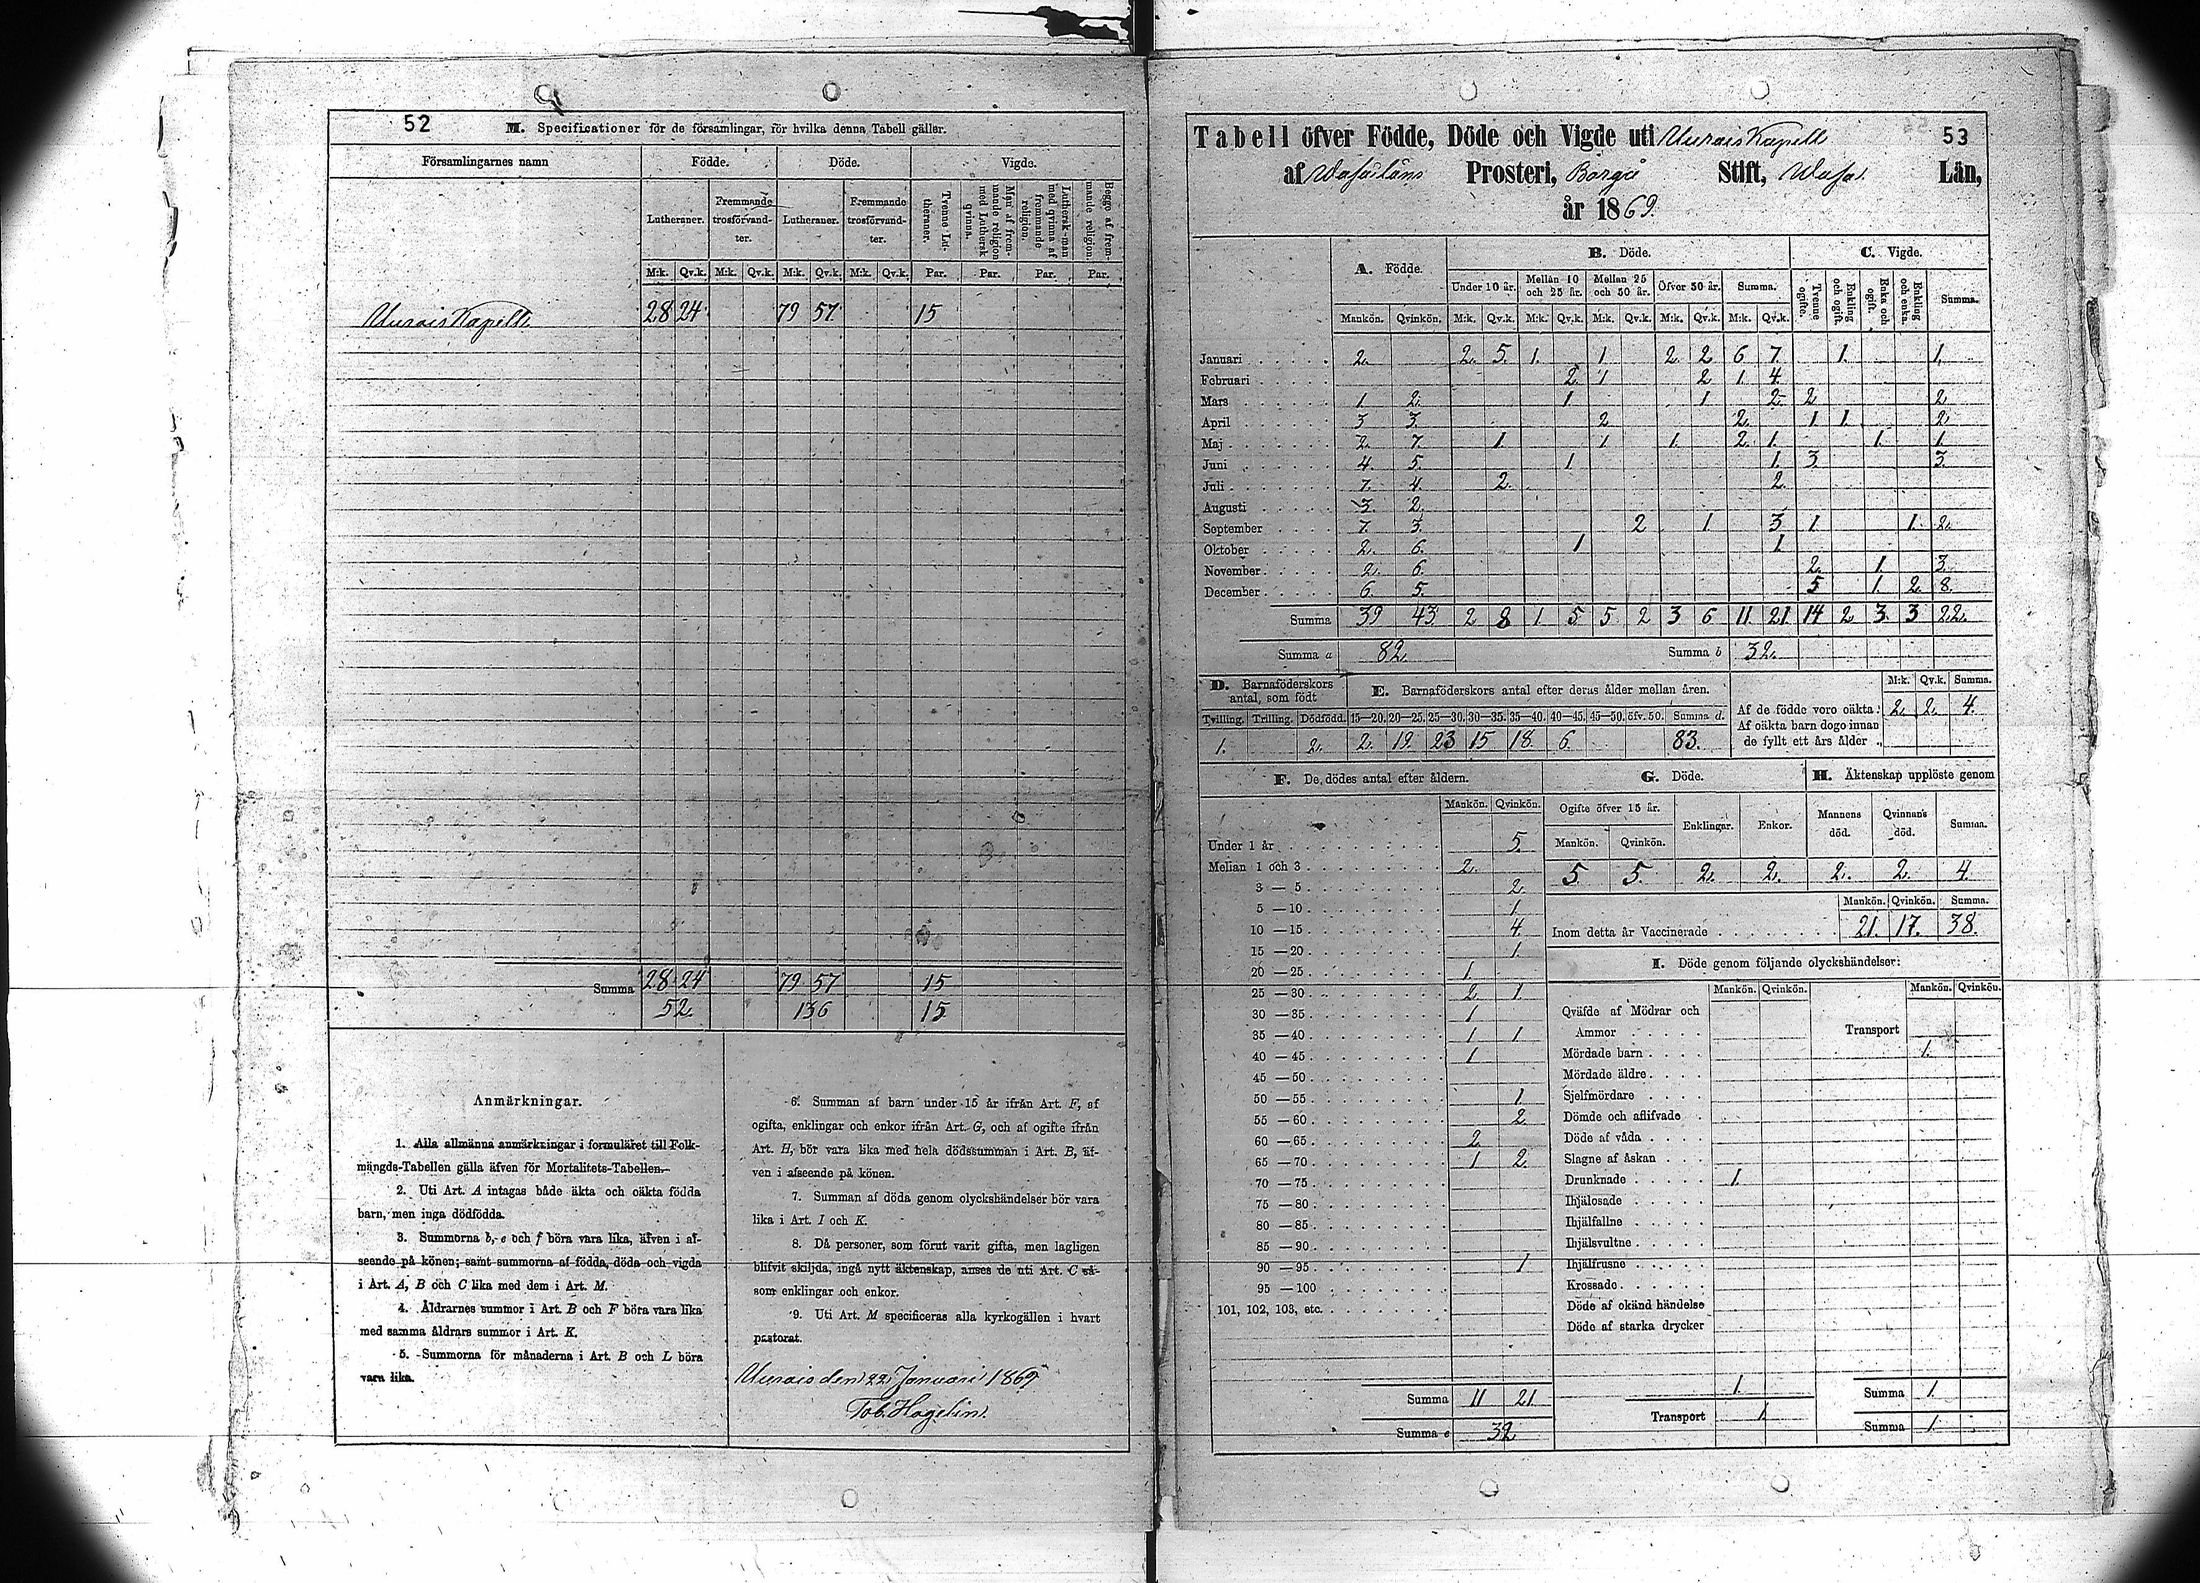 52
M. Specificationer för de församlingar, för hvilka denna Tabell gäller.
Församlingarnes namn
Födde.
Döde.
Vigde.
Lutheraner.
Fremmande trosförvandter.
Lutheraner.
Fremmande trosförvandter.
Tvenne Lutheraner.
Man af fremmande religion med Luthersk qvinna.
Luthersk man med qvinna af fremmande religion.
Begge af fremmande religion.
M:k. Qv.k. M:k. Qv.k. M:k. Qv.k. M:k. Qv.k. Par. Par. Par. Par.
Uurais Kapell 28 24 79 57 15
Summa 28 24 79 57 15
52 136 15
Anmärkningar.
1. Alla allmänna anmärkningar i formuläret till Folk-
mängds-Tabellen gälla äfven för Mortalitets-Tabellen.
2. Uti Art. A intagas både äkta och oäkta födda
barn, men inga dödfödda.
3. Summorna b, e och f böra vara lika, äfven i af-
seende på könen; samt summorna af födda, döda och vigda
i Art. A, B och C lika med dem i Art. M.
4. Åldrarnes summor i Art. B och F böra vara lika
med samma åldrars summor i Art. K.
5. Summorna för månaderna i Art. B och L böra
vara lika.
6. Summan af barn under 15 år ifrån Art. F, af
ogifta, enklingar och enkor ifrån Art. G, och af ogifte ifrån
Art. H, bör vara lika med hela dödssumman i Art. B, äf-
ven i afseende på könen.
7. Summan af döda genom olyckshändelser bör vara
lika i Art. I och K.
8. Då personer, som förut varit gifta, men lagligen
blifvit skiljda, ingå nytt äktenskap, anses de uti Art. C så-
som enklingar och enkor.
9. Uti Art. M specificeras alla kyrkogällen i hvart
pastorat.
Uurais den 22 Januari 1869
Tob. Hagelin.
53
Tabell öfver Födde, Döde och Vigde uti Uurais Kapell
af Wasa läns Prosteri, Borgå Stift, Wasa Län,
år 1869.
A. Födde.
B. Döde.
C. Vigde.
Under 10 år. Mellan 10 och 25 år. Mellan 25 och 50 år. Öfver 50 år. Summa.
Tvenne ogifte. Enkling och ogift. Enka och ogift. Enkling och enka. Summa.
Mankön. Qvinkön. M:k. Qv.k. M:k. Qv.k. M:k. Qv.k. M:k. Qv.k. M:k. Qv.k.
Januari 2. 2. 5. 1. 1 2. 2 6 7. 1. 1.
Februari 2. 1 2 1. 4.
Mars 1 2. 1 1 2. 2 2.
April 3 3. 2 2. 1 1. 2.
Maj 2. 7. 1. 1 1. 2. 1. 1. 1.
Juni 4. 5. 1 1. 3. 3.
Juli 7. 4. 2. 2.
Augusti 3. 2.
September 7. 3. 2 1 3 1. 1. 2.
Oktober 2. 6. 1 1.
November 2. 6. 2. 1. 3.
December 6. 5. 5 1. 2. 8.
Summa 39 43 2 8 1. 5 5 2 3 6 11. 21 14 2 3. 3 22.
Summa a 82. Summa b 32.
D. Barnaföderskors antal, som födt
E. Barnaföderskors antal efter deras ålder mellan åren.
M:k. Qv.k. Summa.
Tvilling. Trilling. Dödfödd. 15—20. 20—25. 25—30. 30—35. 35—40. 40—45. 45—50. öfv. 50. Summa d.
1. 2. 2. 19. 23 15 18. 6. 83.
Af de födde voro oäkta: 2. 2. 4.
Af oäkta barn dogo innan
de fyllt ett års ålder
F. De dödes antal efter åldern.
Mankön. Qvinkön.
Under 1 år 5.
Mellan 1 och 3 2.
3 — 5 2.
5 —10 1.
10 —15 4.
15 —20 1.
20 —25 1.
25 —30 2 1
30 —35 1
35 —40 1 1
40 —45 1
45 —50
50 —55 1.
55 —60 2.
60 —65 2.
65 —70 1 2.
70 —75
75 —80
80 —85
85 —90
90 —95 1
95 —100
101, 102, 103, etc.
Summa 11 21.
Summa e 32.
G. Döde.
Ogifte öfver 15 år.
Mankön. Qvinkön. Enklingar. Enkor.
5 5. 2. 2.
H. Äktenskap upplöste genom
Mannens död. Qvinnans död. Summa.
2. 2. 4.
Mankön. Qvinkön. Summa.
Inom detta år Vaccinerade 21. 17. 38.
I. Döde genom följande olyckshändelser:
Mankön. Qvinkön. Mankön. Qvinkön.
Qväfde af Mödrar och
Ammor Transport
Mördade barn 1.
Mördade äldre
Sjelfmördare
Dömde och aflifvade
Döde af våda
Slagne af åskan
Drunknade 1.
Ihjälosade
Ihjälfallne
Ihjälsvultne
Ihjälfrusne
Krossade
Döde af okänd händelse
Döde af starka drycker
1. Summa 1.
Transport 1 Summa 1.